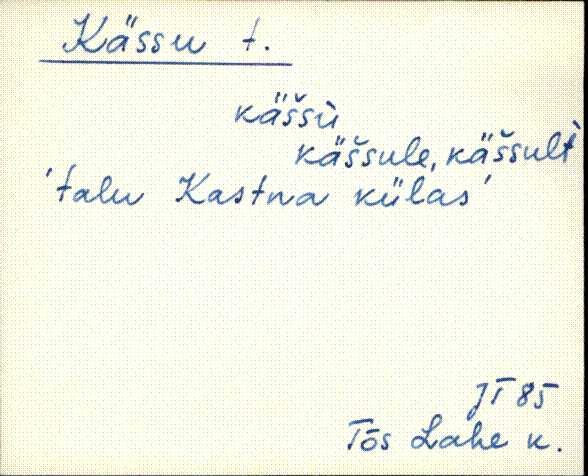 Kässu t.
käššù
käššule, käššult̀
'talu Kastna külas'
JT 85
Tõs Lahe k.